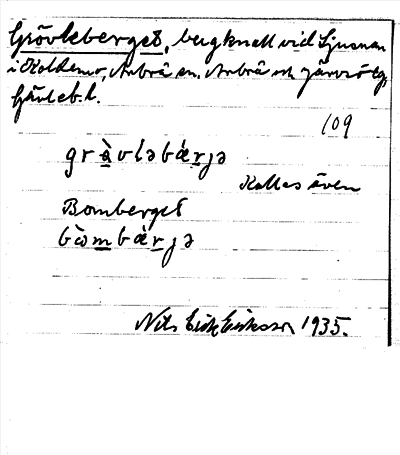 Grövleberget, bergknall vid Ljusnan
i Koldemo, Arbrå sn, Arbrå och Järvsö tg,
Gävleb. l.
109
grὰvləbærjə
Kallas även
Bomberget
bòmbærjə
Nils Erik Eriksson 1935.